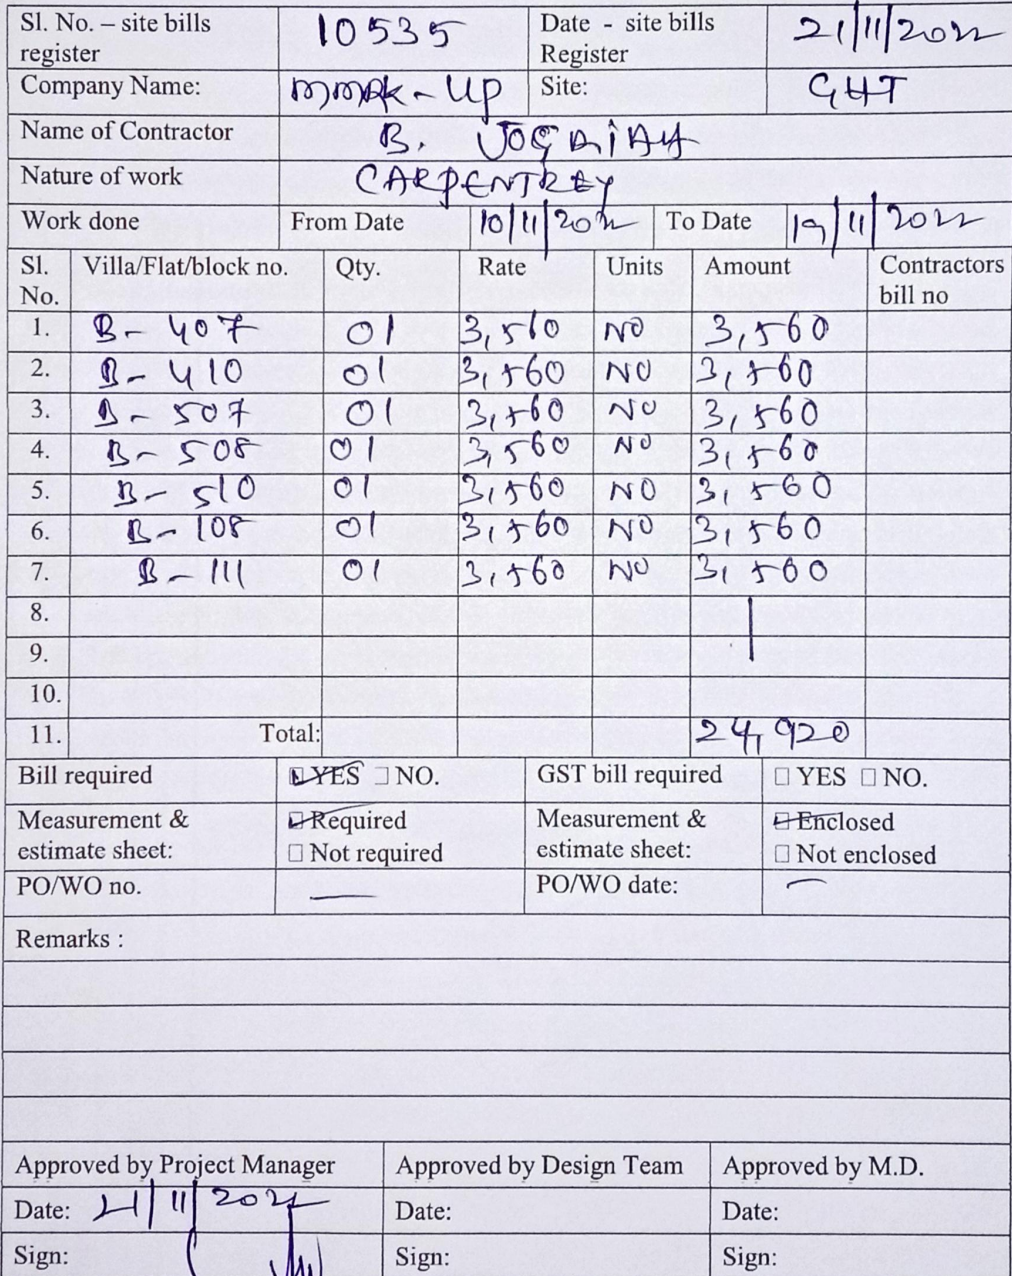 Sl. No. – site bills register 10535 Date - site bills Register 21/11/2022
Company Name: MMRK-UP Site: GHT
Name of Contractor B. JOGAIAH
Nature of work CARPENTRY
Work done From Date 10/11/2022 To Date 19/11/2022
Sl. No. Villa/Flat/block no. Qty. Rate Units Amount Contractors bill no
1. B-407 01 3,560 NO 3,560
2. B-410 01 3,560 NO 3,560
3. B-507 01 3,560 NO 3,560
4. B-508 01 3,560 NO 3,560
5. B-510 01 3,560 NO 3,560
6. B-108 01 3,560 NO 3,560
7. B-111 01 3,560 NO 3,560
8.
9.
10.
11. Total: 24920
Bill required YES NO. GST bill required YES NO.
Measurement & estimate sheet: Required Not required Measurement & estimate sheet: Enclosed Not enclosed
PO/WO no. — PO/WO date: —
Remarks :
Approved by Project Manager Approved by Design Team Approved by M.D.
Date: 21/11/2022 Date: Date:
Sign: Sign: Sign: